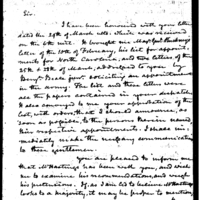 Sir.
I have been honored with your letter
dated the 29th of March ulto. which was received
on the 6th inst. It brought me
letter of the 10th of February, his list for appoint-
ments for North Carolina, and two letters of the
25 & 29th of March, addressed to you by
soliciting an appointment
in the army. The list and these letters were
as the papers contained in yours
It also conveyed to me your approbation of the
list, with orders, that I should announce, as
soon as possible, to the persons therein named
their respective appointments. I shall im-
mediately make the necessary communication
to these gentlemen.
You are pleased to inform me
that Mr Hastings has been with you, and wish
me to examine his recommendations, and weigh
his pretensions. If, as I am led to believe Mr Hastings
looks to a majority, it may be proper to mention